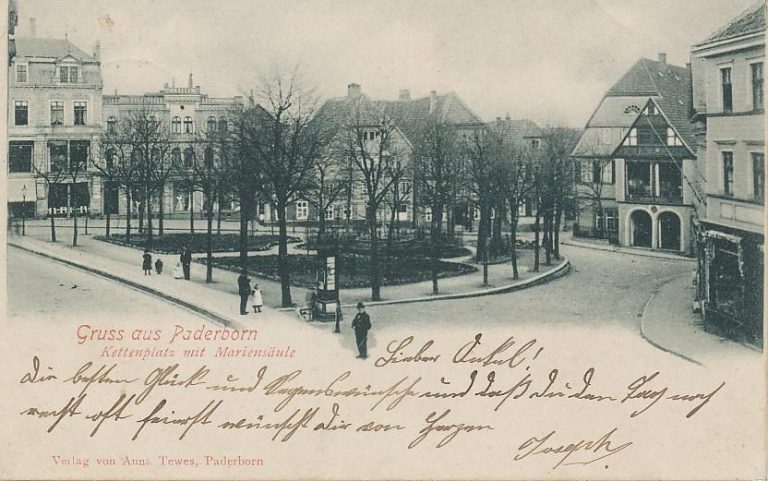 Gruss aus Paderborn
Kettenplatz mit Mariensäule
Lieber Onkel!
Dir besten Glück und Segenswünsche und daß du den Tag noch
recht oft feierst wünscht dir von Herzen
Joseph
Verlag von Anna Tewes, Paderborn